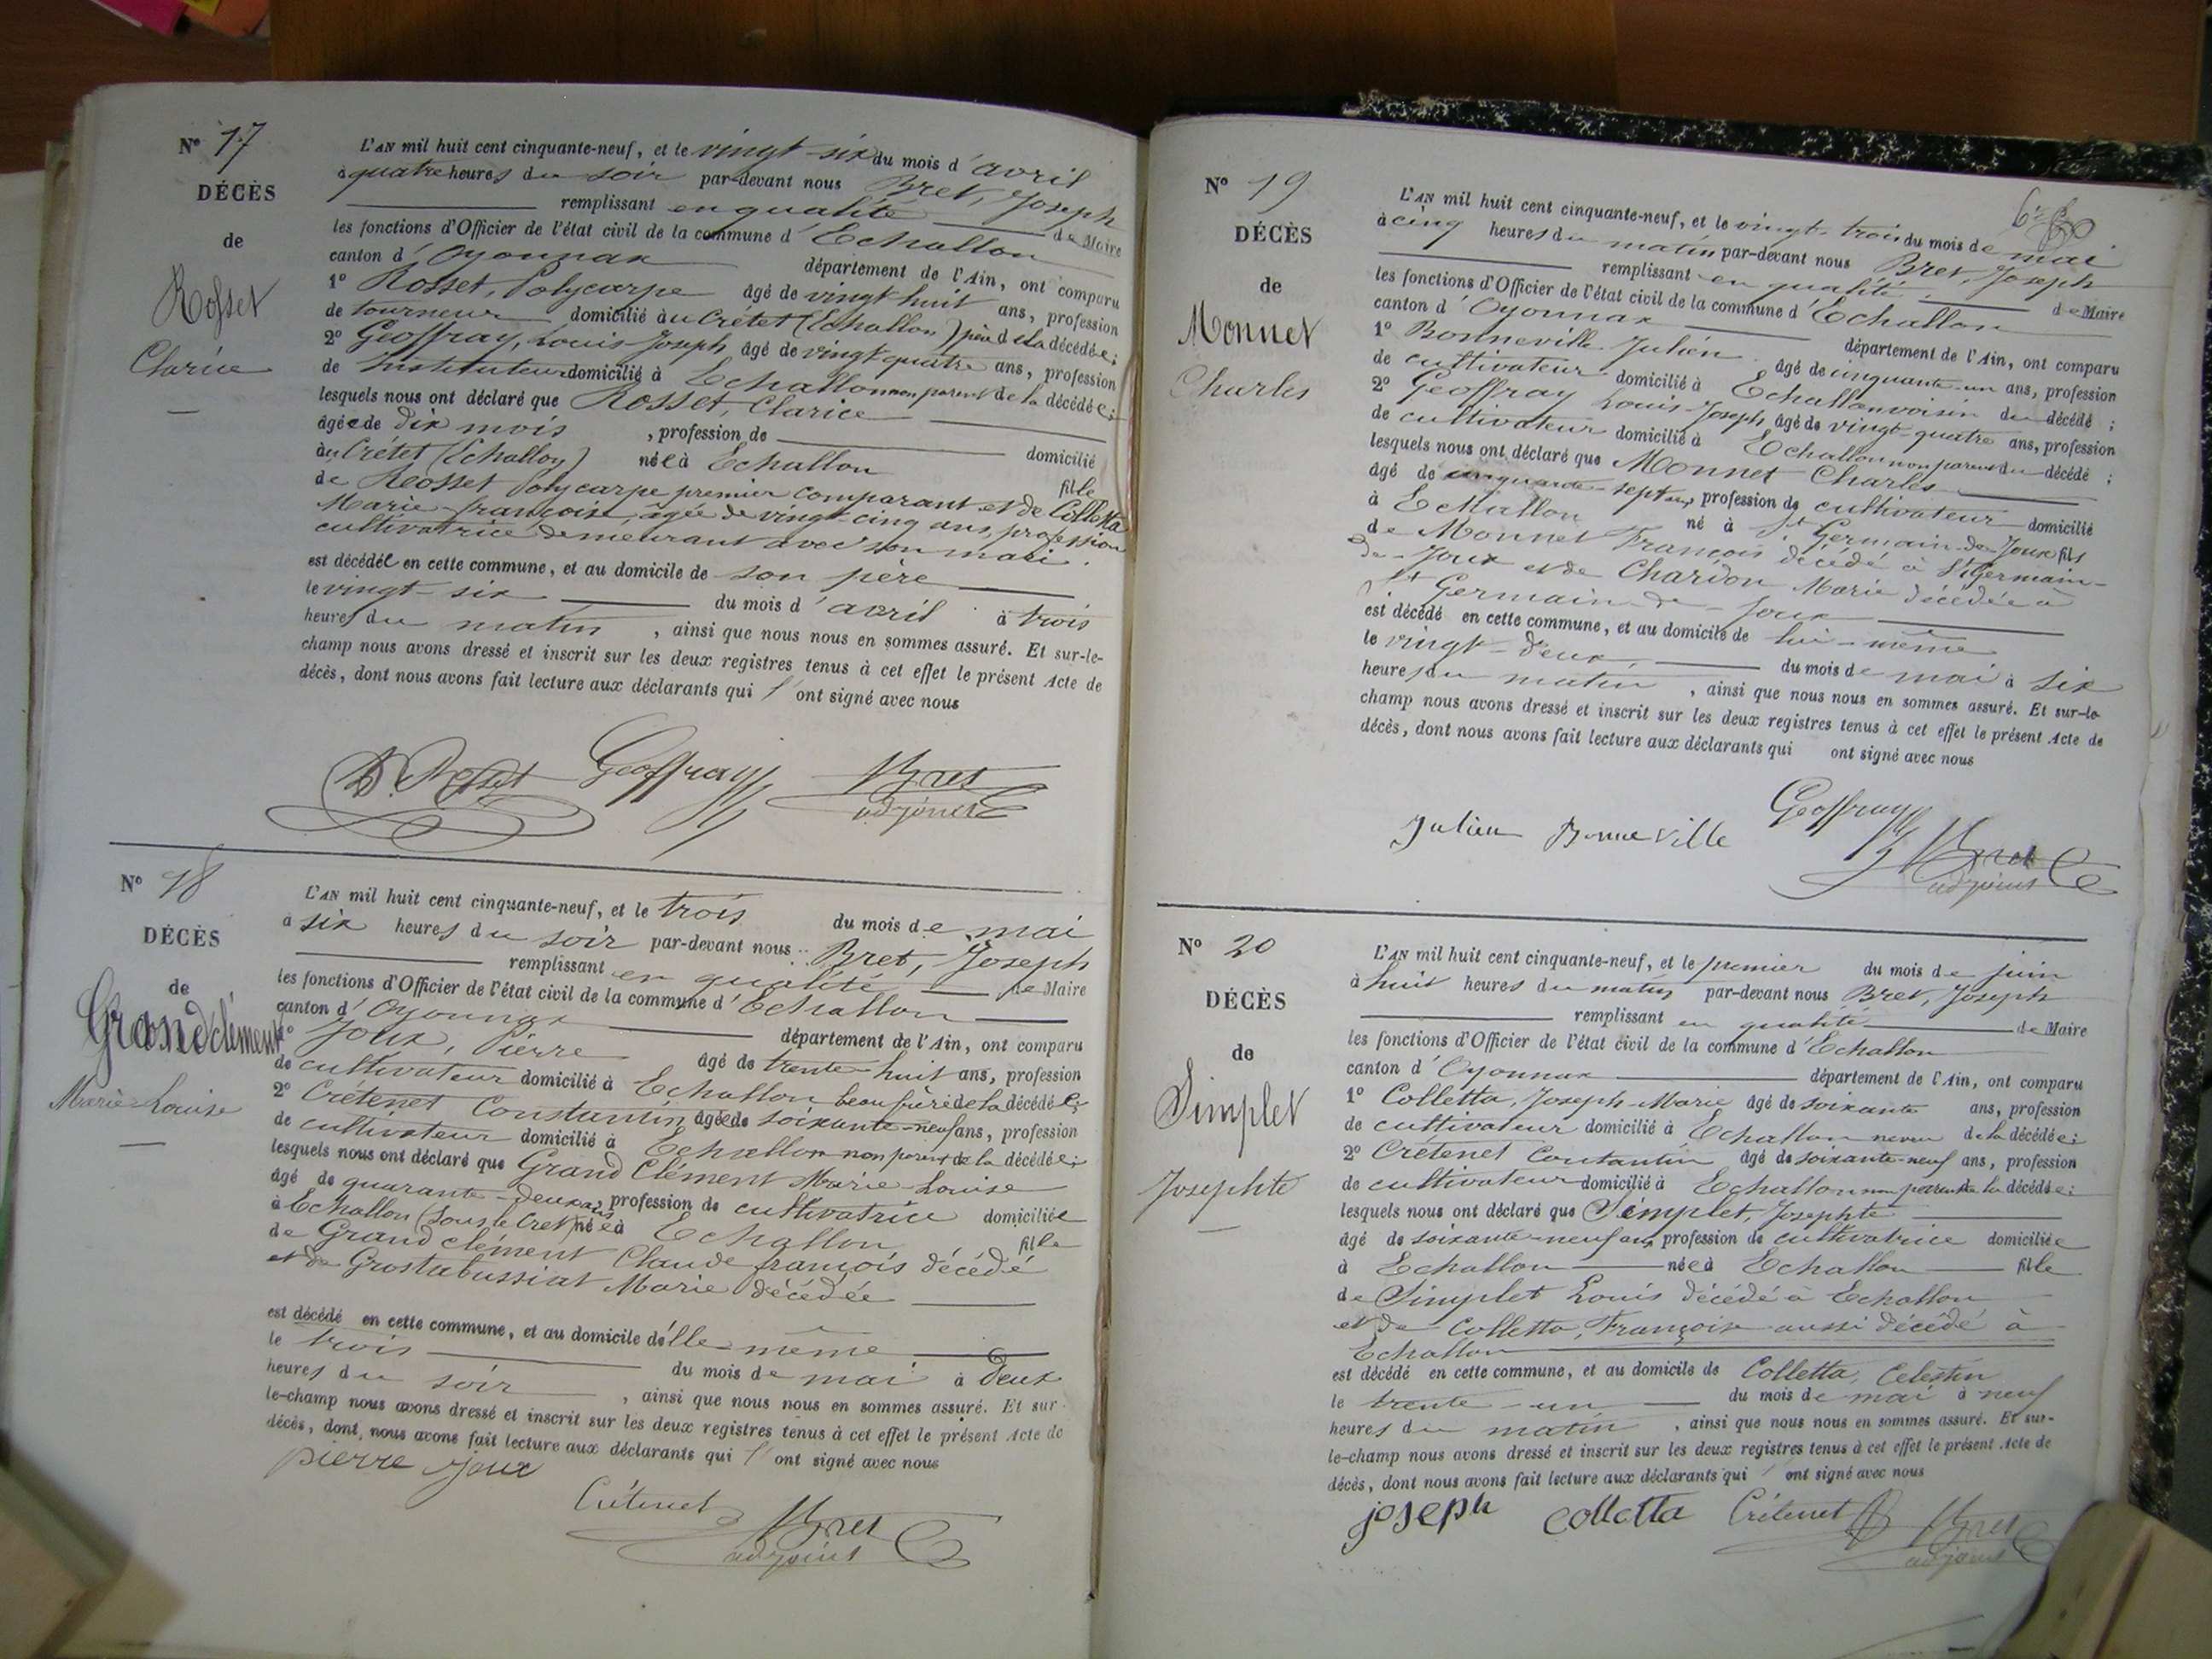 N° 17
DÉCÈS
de
Rosset
Clarice
L'AN mil huit cent cinquante-neuf, et le vingt-six du mois d'avril
à quatre heures du soir par-devant nous Bret, Joseph
remplissant en qualité de Maire
les fonctions d'Officier de l'état civil de la commune d'Echallon
canton d'Oyonnax département de l'Ain, ont comparu
1° Rosset, Polycarpe âgé de vingt huit ans, profession
de tourneur domicilié au Crétet (Echallon) père de la décédée;
2° Geoffray, Louis Joseph âgé de vingt quatre ans, profession
de Instituteur domicilié à Echallon non parent de la décédée;
lesquels nous ont déclaré que Rosset, Clarice
âgée de dix mois , profession de domicilié
au Crétet (Echallon) née à Echallon fille
de Rosset Polycarpe premier comparant et de Colletta
Marie-françoise, agée de vingt-cinq ans, profession
cultivatrice demeurant avec son mari.
est décédée en cette commune, et au domicile de son père
le vingt-six du mois d'avril à trois
heures du matin , ainsi que nous nous en sommes assuré. Et sur-le-
champ nous avons dressé et inscrit sur les deux registres tenus à cet effet le présent Acte de
décès, dont nous avons fait lecture aux déclarants qui l'ont signé avec nous
Rosset Geoffray Bret
adjoint
N° 18
DÉCÈS
de
Grandclément
Marie Louise
L'AN mil huit cent cinquante-neuf, et le trois du mois de mai
à six heures du soir par-devant nous Bret, Joseph
remplissant en qualité de Maire
les fonctions d'Officier de l'état civil de la commune d'Echallon
canton d'Oyonnax département de l'Ain, ont comparu
1° Joux, Pierre âgé de trente-huit ans, profession
de cultivateur domicilié à Echallon beau frère de la décédée;
2° Crétenet Constantin âgé de soixante-neuf ans, profession
de cultivateur domicilié à Echallon non parent de la décédée;
lesquels nous ont déclaré que Grand Clément Marie Louise
âgé de quarante-deux ans, profession de cultivatrice domiciliée
à Echallon (sous le Cret) née à Echallon fille
de Grand clément Claude françois décédé
et de Grostabussiat Marie décédée
est décédé en cette commune, et au domicile d'elle même
le trois du mois de mai à deux
heures du soir , ainsi que nous nous en sommes assuré. Et sur-
le-champ nous avons dressé et inscrit sur les deux registres tenus à cet effet le présent Acte de
décès, dont nous avons fait lecture aux déclarants qui l'ont signé avec nous
pierre joux
Crétenet Bret
adjoint
N° 19
DÉCÈS
de
Monnet
Charles
L'AN mil huit cent cinquante-neuf, et le vingt-trois du mois de mai
à cinq heures du matin par-devant nous Bret, Joseph
remplissant en qualité de Maire
les fonctions d'Officier de l'état civil de la commune d'Echallon
canton d'Oyonnax département de l'Ain, ont comparu
1° Bonneville Julien âgé de cinquante-un ans, profession
de cultivateur domicilié à Echallon voisin du décédé ;
2° Geoffray Louis-Joseph âgé de vingt-quatre ans, profession
de cultivateur domicilié à Echallon non parent du décédé ;
lesquels nous ont déclaré que Monnet Charles
âgé de cinquante-sept ans, profession de cultivateur domicilié
à Echallon né à St Germain-de-Joux fils
de Monnet François décédé à St Germain-
de-Joux et de Chardon Marie décédée à
St Germain-de-Joux
est décédé en cette commune, et au domicile de lui-même
le vingt-deux du mois de mai à six
heures du matin , ainsi que nous nous en sommes assuré. Et sur-le-
champ nous avons dressé et inscrit sur les deux registres tenus à cet effet le présent Acte de
décès, dont nous avons fait lecture aux déclarants qui ont signé avec nous
Julien Bonneville Geoffray Bret
adjoint
N° 20
DÉCÈS
de
Simplet
Josephte
L'AN mil huit cent cinquante-neuf, et le premier du mois de juin
à huit heures du matin par-devant nous Bret, Joseph
remplissant en qualité de Maire
les fonctions d'Officier de l'état civil de la commune d'Echallon
canton d'Oyonnax département de l'Ain, ont comparu
1° Colletta, Joseph-Marie âgé de soixante ans, profession
de cultivateur domicilié à Echallon neveu de la décédée;
2° Crétenet Constantin âgé de soixante-neuf ans, profession
de cultivateur domicilié à Echallon non parent de la décédée;
lesquels nous ont déclaré que Simplet, Josephte
âgé de soixante-neuf ans, profession de cultivatrice domiciliée
à Echallon née à Echallon fille
de Simplet Louis décédé à Echallon
et de Colletta, Françoise aussi décédé à
Echallon
est décédé en cette commune, et au domicile de Colletta, Celestin
le trente-un du mois de mai à neuf
heures du matin , ainsi que nous nous en sommes assuré. Et sur-
le-champ nous avons dressé et inscrit sur les deux registres tenus à cet effet le présent Acte de
décès, dont nous avons fait lecture aux déclarants qui l'ont signé avec nous
joseph colletta Crétenet Bret
adjoint